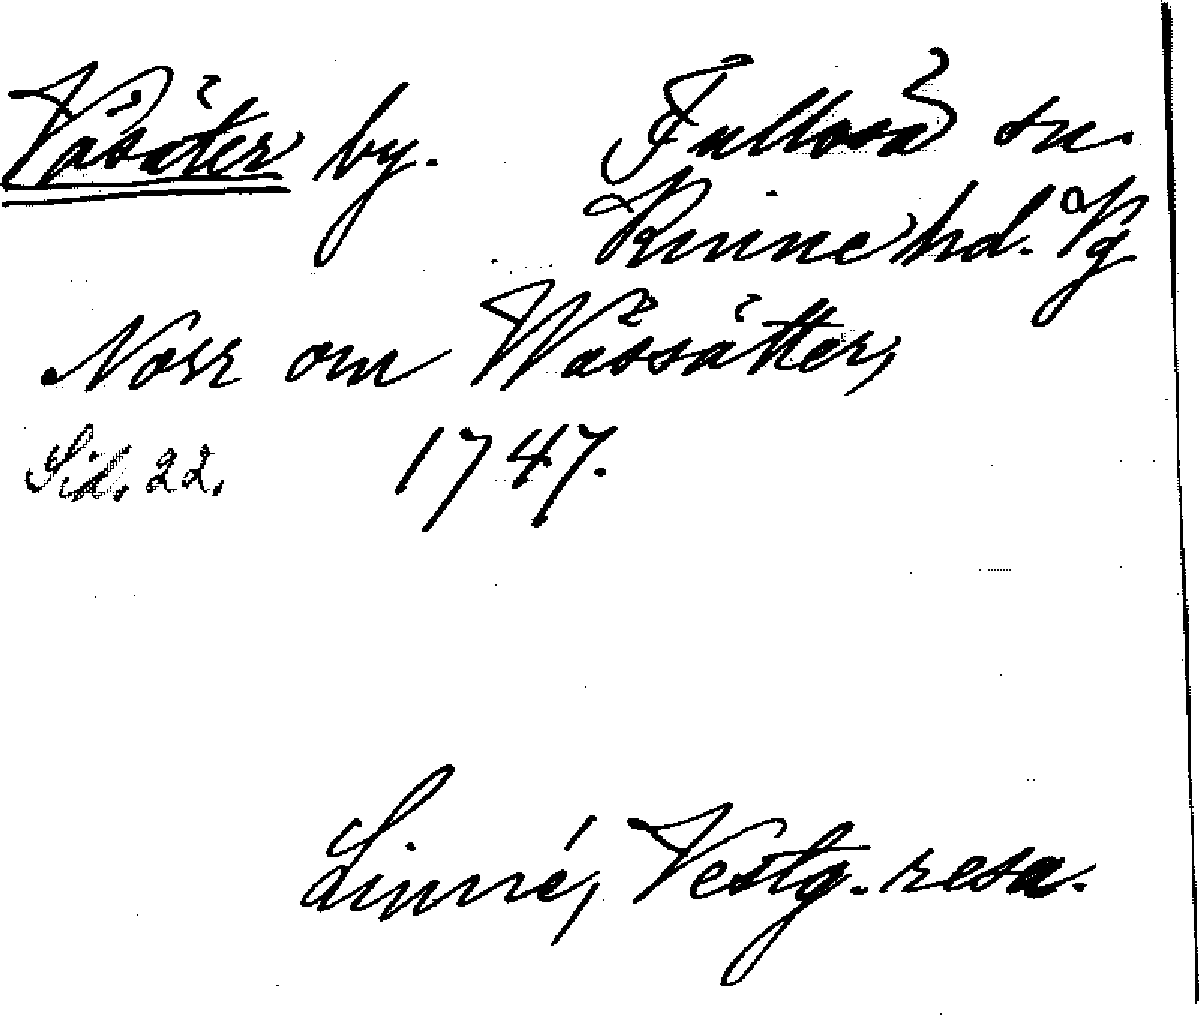 Väsäter by. Fullösa sn.
Kinne hd. Vg
Norr om Wässätter,
Sid. 22. 1747.
Linné, Vestg. resa.